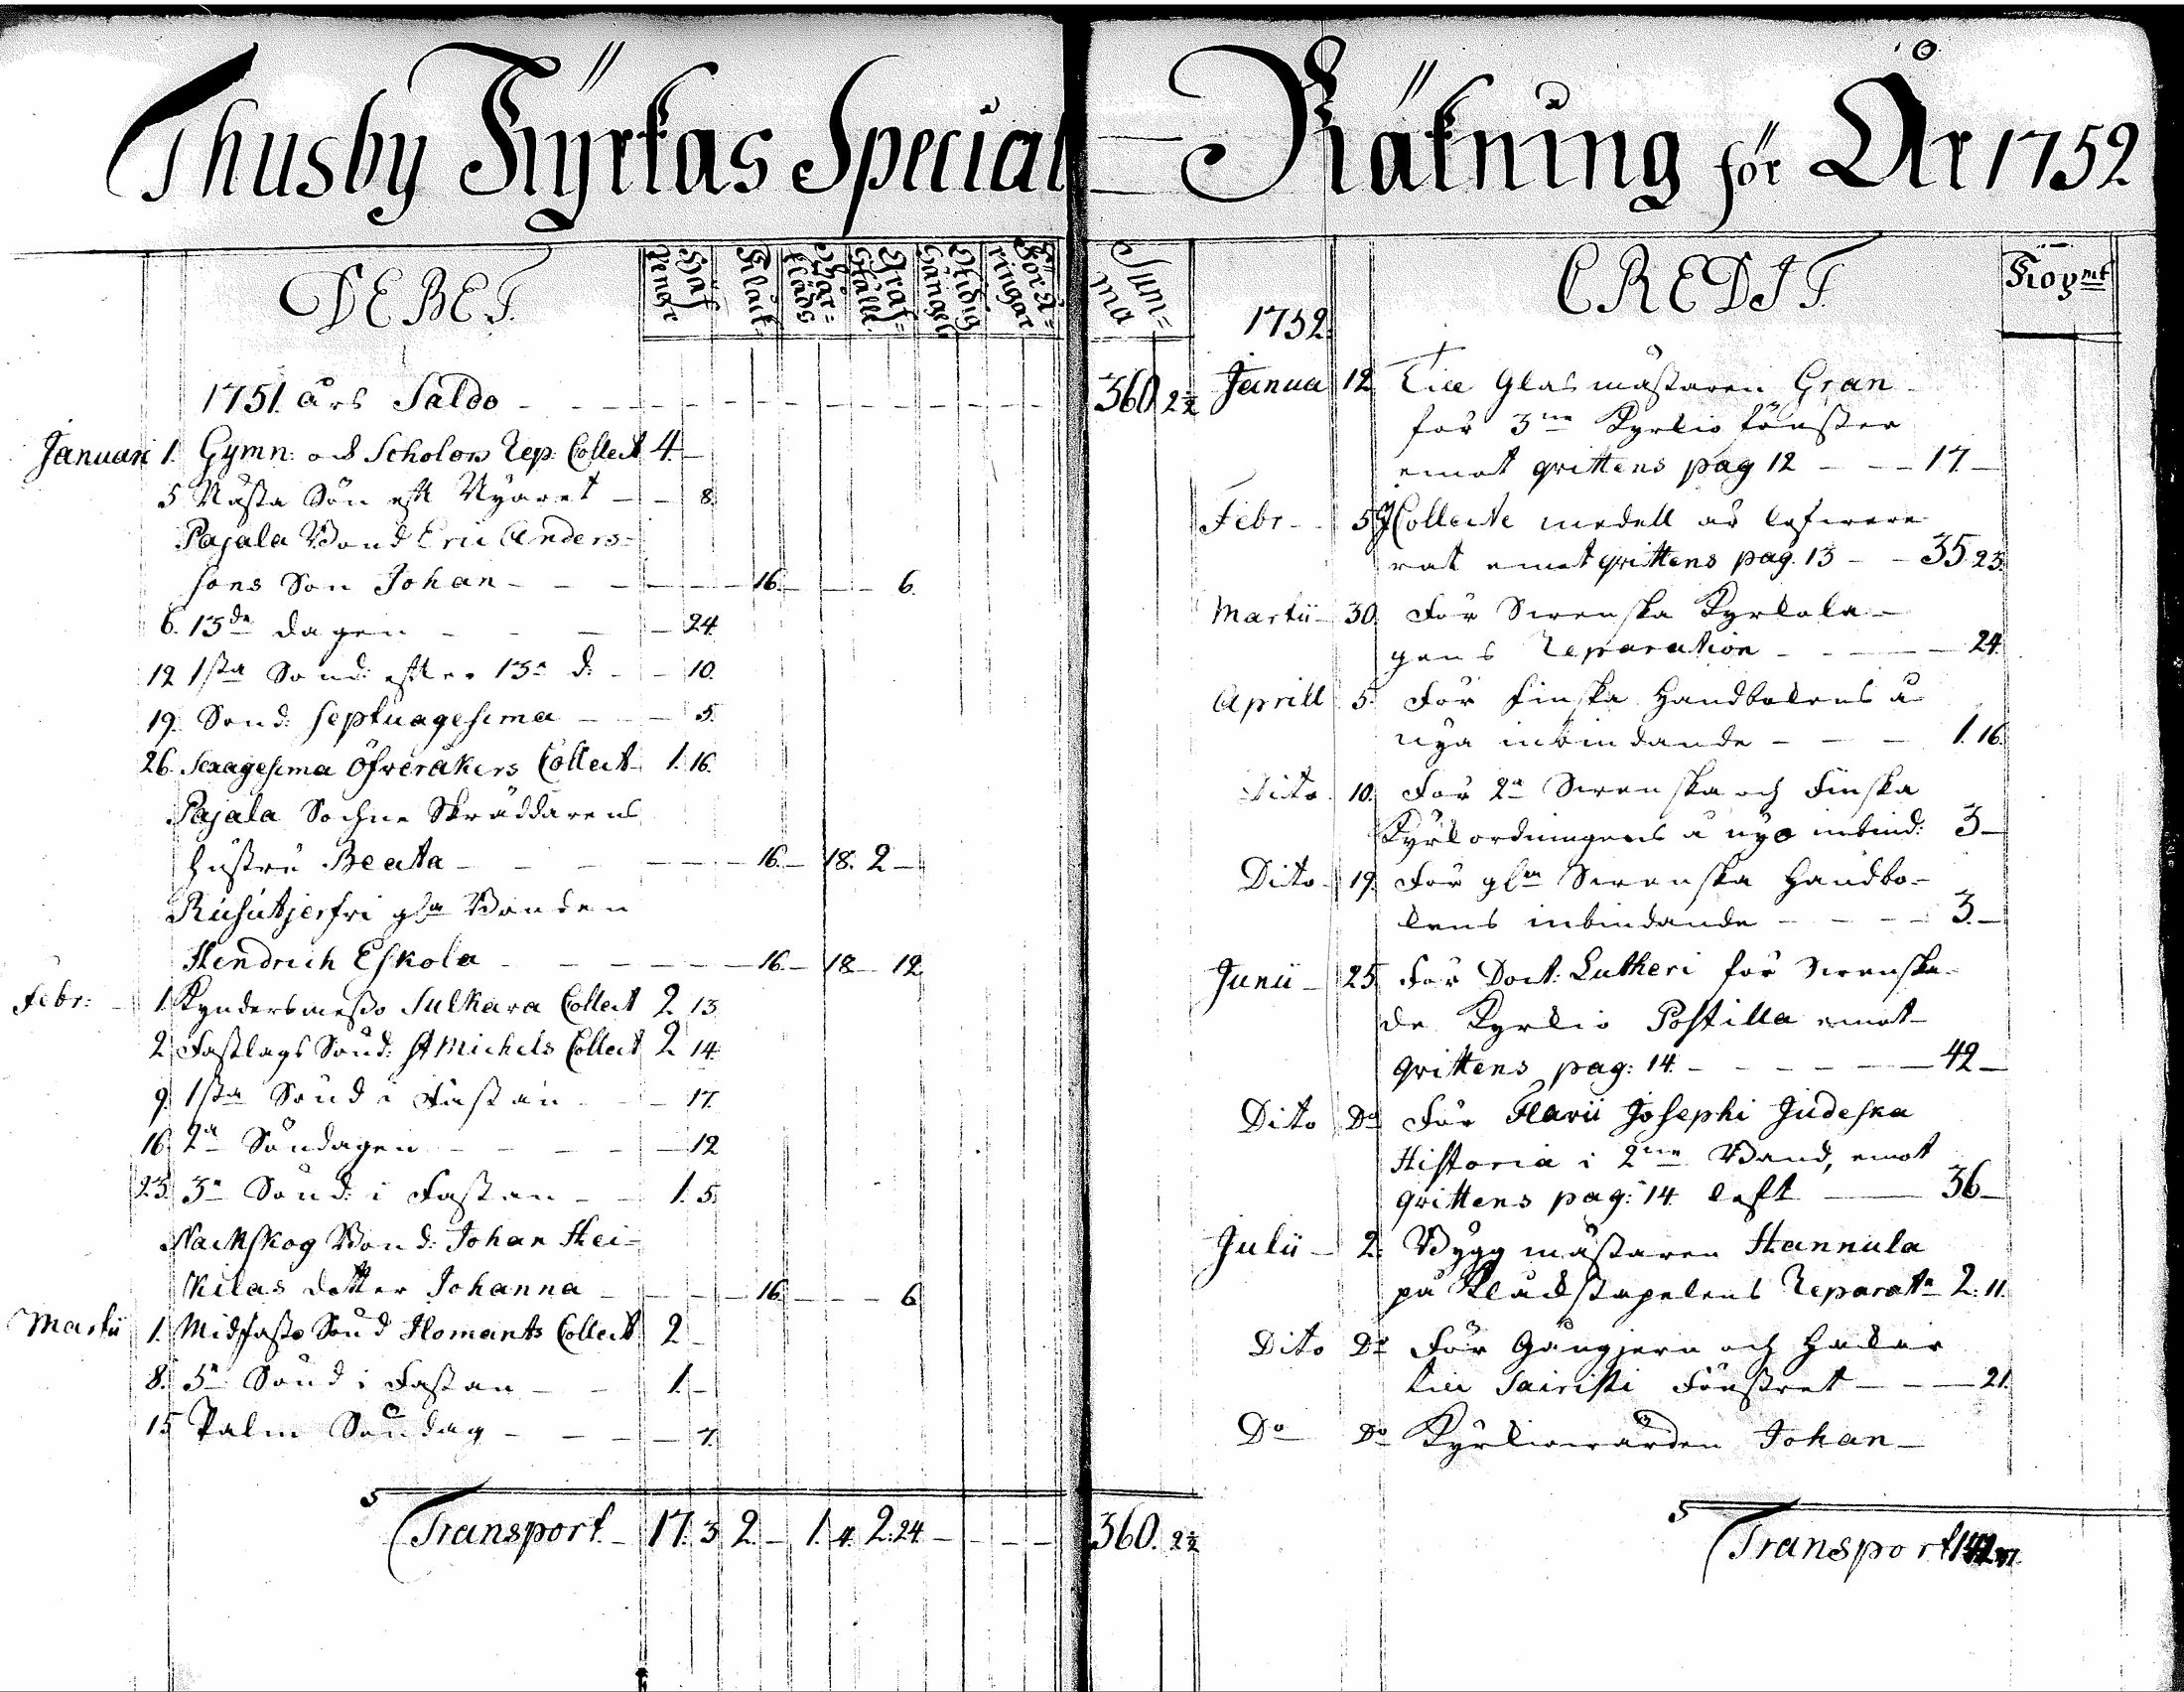 Thusby Kyrkas Special Räkning för År 1752
DEBET.
Håf pengr
Klåck
Bår= kläds
Graf= ställe
Städig Gångel
Förä= ringar
Sum= ma
1751. års Saldo - - - 360. 2½
Januari 1. Gymn: och Scholors Rep. Collect 4. -
5 Nästa Sön. eft. Nyåret - - 8.
Pajala Bond. Eric Anders=
sons Son Johan - - - 16. - - 6.
6. 13de dagen - - - 24.
12 1sta Sond: efter 13de d: - - 10.
19. Sond: Septuagesima - - 5.
26. Sexagesima Öfveråkers Collect 1. 16.
Pajala Sochne Skräddarens
hustru Beata - - - 16. - 18. 2 -
Rusutjerfvi gla Bonden
Hendrich Eskola - - - 16. - 18 - 12
Febr: 1. Kyndersmesso Sulkava Collect 2 13
2. Fastlags Sönd: St Michels Collect 2 14.
9. 1sta Sönd i Fastan - - 17.
16. 2a Söndagen - - - 12
23. 3e Sönd: i Fastan - - 1. 5.
Nackskog Bond: Johan Hei=
kkilas dotter Johanna - - - 16. - - 6
Martii 1. Midfasto Sönd Ilomants Collect 2 -
8. 5e Sönd i Fastan - - 1. -
15 Palm Söndag - - - 7.
Transport - 17. 3 2. - 1. 4. 2. 24 - - - 360. 2½
CREDIT.
1752.
Kopmt
Janua 12 Till Glasmästaren Gran
för 3ne Kyrkio fönster
emot qvittens pag 12 - - 17. -
Febr - 5 Collecte medell av lefvere
rat emot qvittens pag. 13 - - 35. 23.
Martii - 30. För Svenska Kyrkola-
gens Reparation - - - 24.
Aprill 5. För finska Handbokens å
nya inbindande - - - 1. 16.
Dito. 10. För 2a Svenska och Finska
Kyrkordningens å nyo inbind: 3 -
Dito - 19. För gla Svenska Handbo-
kens inbindande - - - 3. -
Junii - 25. För Doct: Lutheri för svenska-
de Kyrkio Postilla emot
qvittens pag: 14. - - - 42 -
Dito Do För Flavii Josephi Judeska
Historia i 2ne Band, emot
qvittens pag: 14 köpt - 36 -
Julii - 2. Byggmästaren Hannula
på Klåckstapelens Reparatn 2. 11.
Dito Do För Gångjern och Hakar
till Sacristi Fönstret - - - 21.
Do Do Kyrkiowärden Johan -
Transport